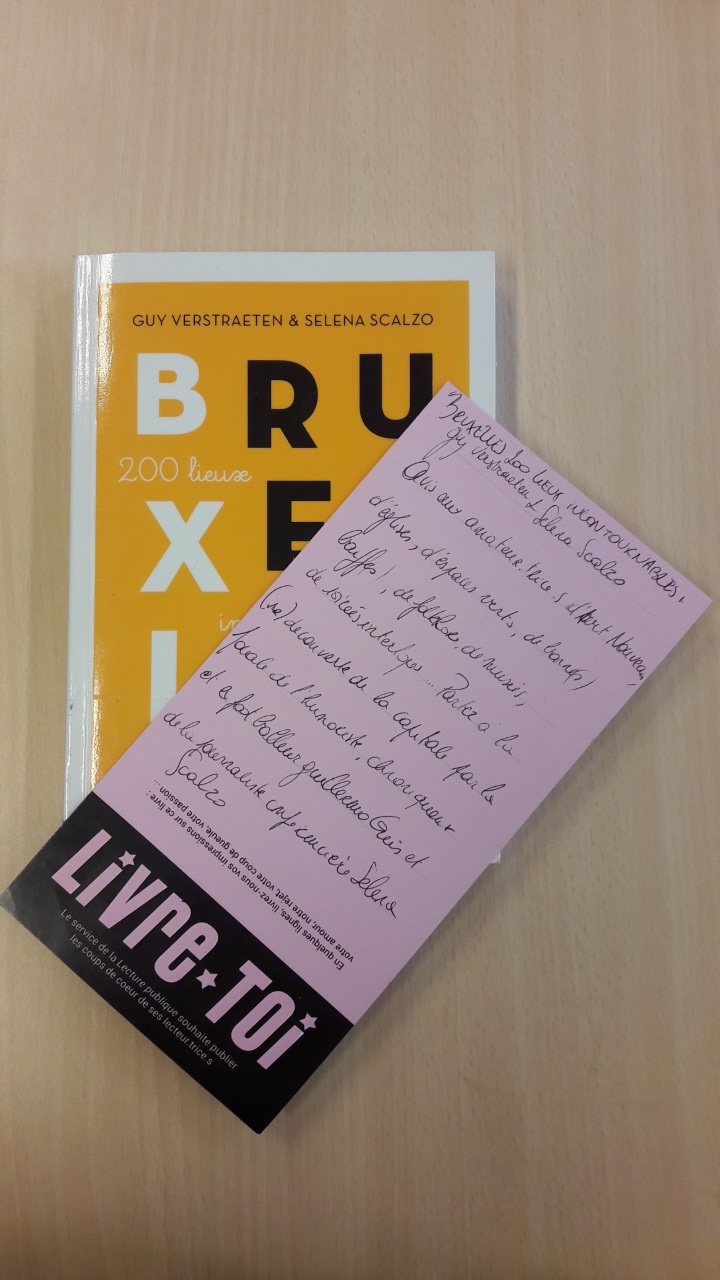 GUY VERSTRAETEN & SELENA SCALZO
BRU
200 lieux
XE
in
L
Bruxelles 200 lieux incontournables.
Guy Verstraeten & Selena Scalzo
Avis aux amateur.trice.s d'Art Nouveau,
d'églises, d'espaces verts, de bonne(s)
bouffe(s), de folklore, de musées,
de soirées interlopes... Partez à la
(re)découverte de la capitale par la
focale de l'humoriste, chroniqueur
et ex footballeur Guillermo Guiz et
de la journaliste Selena
Scalzo
En quelques lignes, livrez-nous vos impressions sur ce livre :
votre amour, notre rejet, votre coup de gueule, votre passion...
Livre-Toi
Le service de la Lecture publique souhaite publier
les coups de coeur de ses lecteur.trice.s